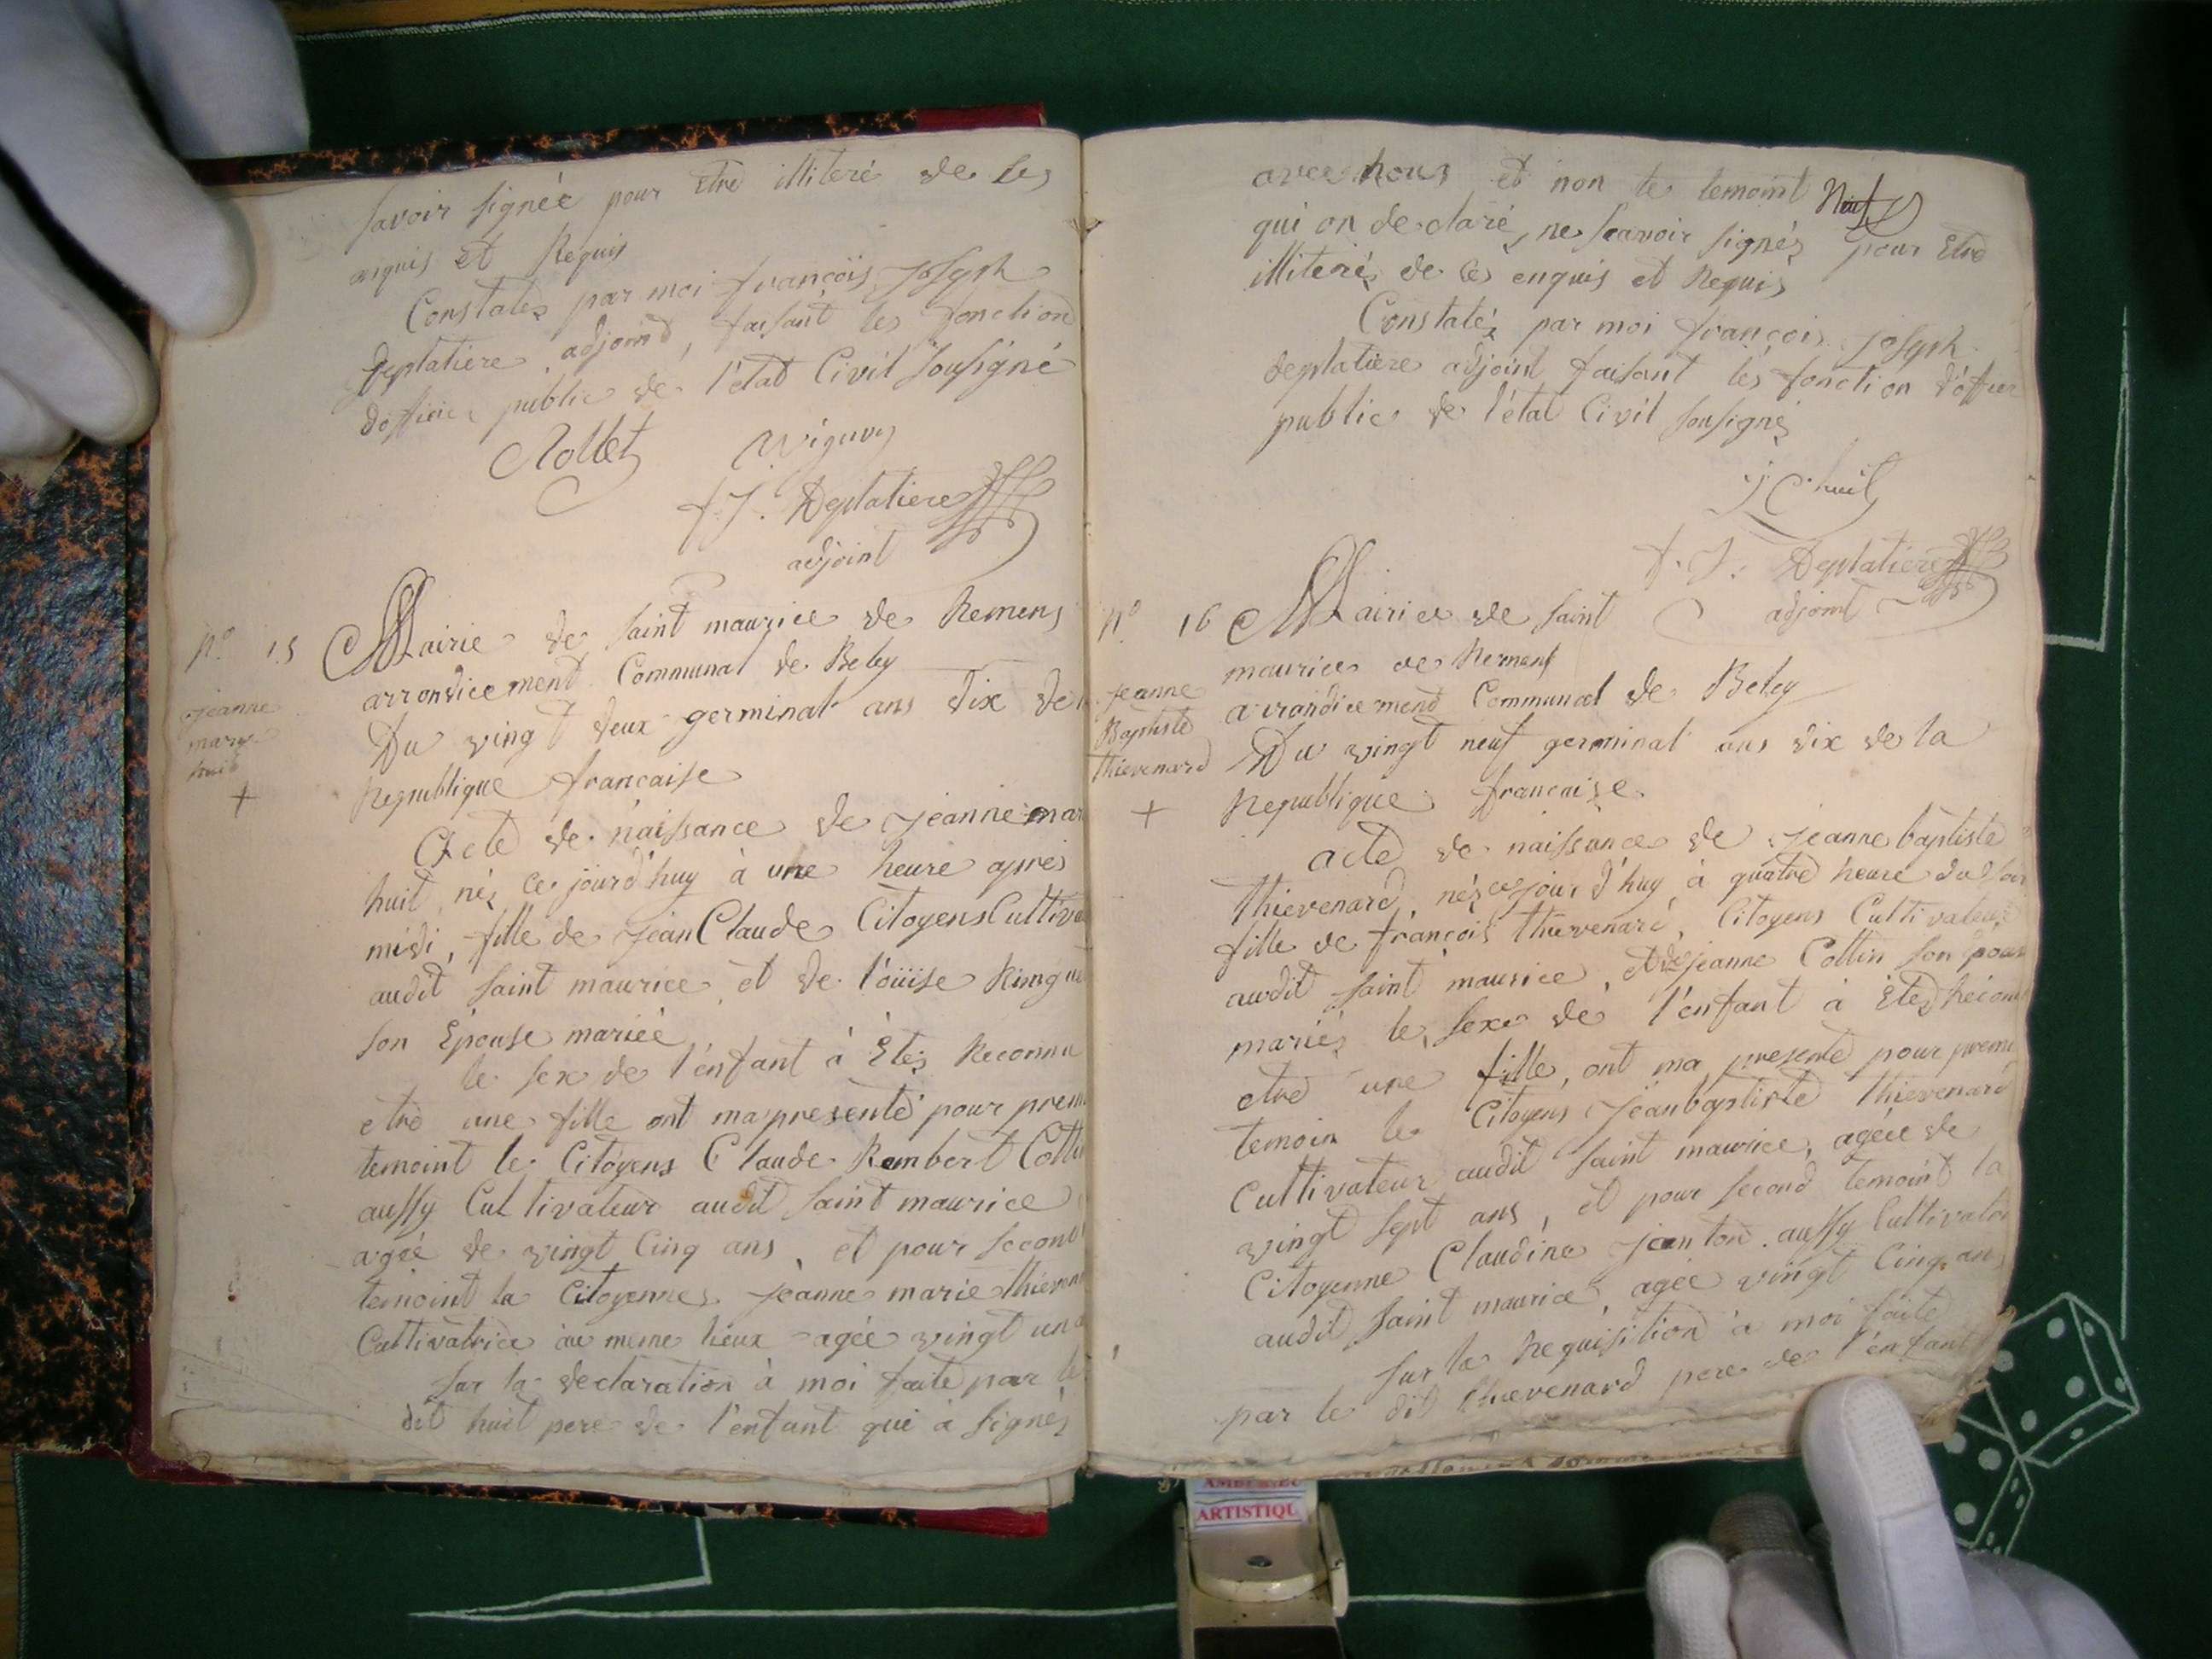 savoir signée pour etre illiteré de ses
enquis et Requis
Constatés par moi françois joseph
Deplatiere adjoind, faisant les fonction
d'officier public de l'état Civil sousigné
Rollet
f. J. Deplatiere
adjoint
n.º 15
jeanne
mary
huit
+
Mairie de saint maurice de Remens
arrondicement Communal de Beley
Du vingt deux germinal ans dix de
Republique francaise
Acte de naissance de jeanne mar
huit, nés ce jourd'huy à une heure après
midi, fille de jean Claude Citoyens Cultiva
audit saint maurice, et de l'oüise
son Épouse mariée
le sex de l'enfant à Étés Reconnu
etre une fille ont ma presenté pour prem
temoint le Citoyens Claude Rambert Collin
aussy Cultivateur audit saint maurice
agée de vingt Cinq ans, et pour second
temoint la Citoyennes jeanne marie thieven
Cultivatrice au meme lieux agée vingt un a
Sur la declaration à moi faite par le
dit huit pere de l'enfant qui à signés
avec nous et non te temoint
qui on declaré, ne scavoir signés pour Etre
illiterés de ces enquis et Requis
Constatés par moi françois joseph
deplatiere adjoint faisant les fonction d'offier
public de l'état Civil sousignés
j C huit
f. J. Deplatiere
adjoint
nº 16
jeanne
Baptiste
thievenard
+
Mairiee de saint
maurice de Remens
arrondicemend Communal de Beley
Du vingt neuf germinal ans dix de la
Republique francaise
acte de naissance de jeanne baptiste
thievenard, nés ce jour d'huy à quatre heure du soir
fille de françois thievenard, Citoyens Cultivateur
audit saint maurice, et de jeanne Collin son épous
mariés le sexe de l'enfant à Étes Reconn
etre une fille, ont ma presenté pour premi
temoin le Citoyens jean baptiste thievenard
Cultivateur audit saint maurice, agée de
vingt sept ans, et pour second temoint la
Citoyenne Claudine janton aussy Cultivatri
audit saint maurice, agée vingt Cinq ans
Sur la Requisition à moi faite
par le dit thievenard pere de l'enfant
ARTISTIQU